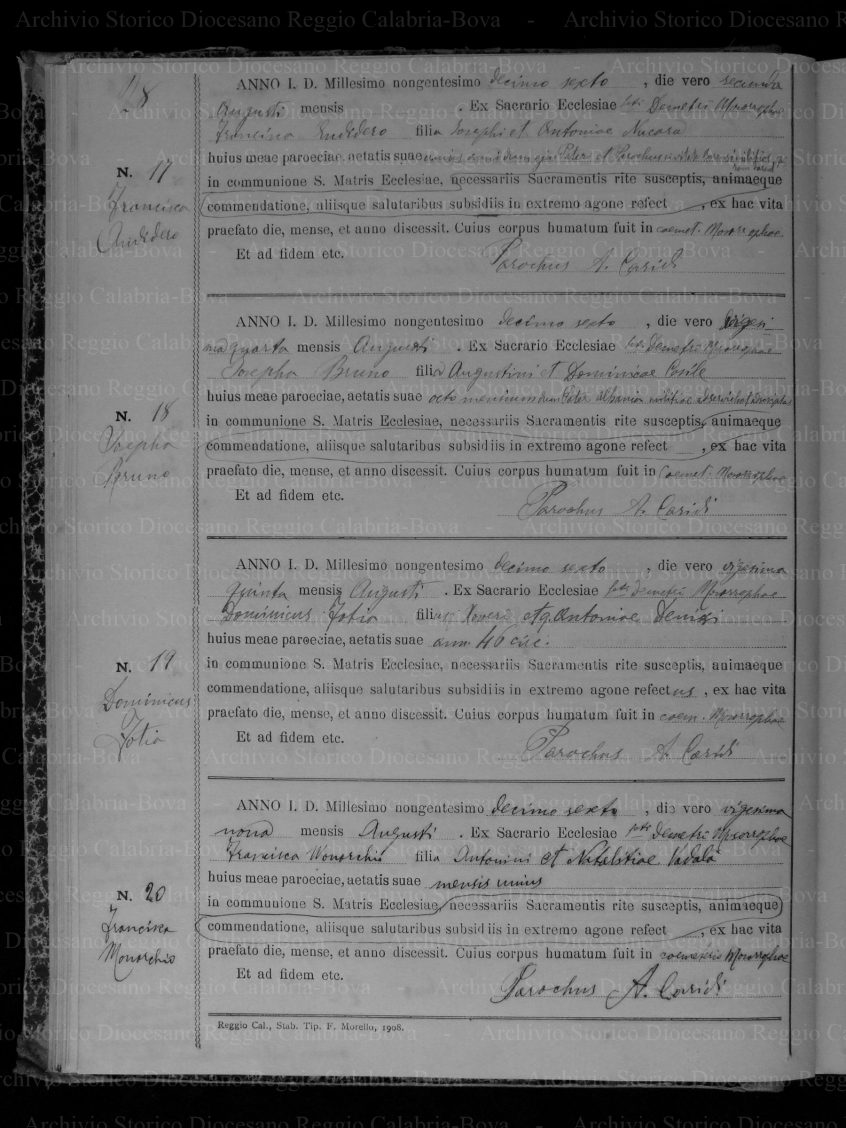 Archivio Storico Diocesano Reggio Calabria-Bova - Archivio Storico Diocesano Reggio Calabria-Bova
28
ANNO I. D. Millesimo nongentesimo decimo sexto, die vero secunda
Augusti mensis . Ex Sacrario Ecclesiae Demetri Mosorrophae
Francisca Audidero filia Josephi et Antoniae Nucara
huius meae paroeciae, aetatis suae unius anni
N. 17
in communione S. Matris Ecclesiae, necessariis Sacramentis rite susceptis, animaeque
Francisca
commendatione, aliisque salutaribus subsidiis in extremo agone refect , ex hac vita
Audidero
praefato die, mense, et anno discessit. Cuius corpus humatum fuit in coemet. Mosorrophae
Et ad fidem etc.
Parochus A. Caridi
ANNO I. D. Millesimo nongentesimo decimo sexto , die vero vigesi
ma quarta mensis Augusti . Ex Sacrario Ecclesiae Demetri Mosorrophae
Josepha Bruno filia Augustini et Dominicae Cosile
huius meae paroeciae, aetatis suae octo mensium
N. 18
in communione S. Matris Ecclesiae, necessariis Sacramentis rite susceptis, animaeque
Josepha
commendatione, aliisque salutaribus subsidiis in extremo agone refect , ex hac vita
Bruno
praefato die, mense, et anno discessit. Cuius corpus humatum fuit in coemet. Mosorrophae
Et ad fidem etc.
Parochus A. Caridi
ANNO I. D. Millesimo nongentesimo decimo sexto , die vero vigesima
quinta mensis Augusti . Ex Sacrario Ecclesiae Demetri Mosorrophae
Dominicus Fotia filius Xaverii et q. Antoniae
huius meae paroeciae, aetatis suae ann. 40 circ.
N. 19
in communione S. Matris Ecclesiae, necessariis Sacramentis rite susceptis, animaeque
Dominicus
commendatione, aliisque salutaribus subsidiis in extremo agone refectus , ex hac vita
Fotia
praefato die, mense, et anno discessit. Cuius corpus humatum fuit in coem. Mosorrophae
Et ad fidem etc.
Parochus A. Caridi
ANNO I. D. Millesimo nongentesimo decimo sexto , die vero vigesima
nona mensis Augusti . Ex Sacrario Ecclesiae Demetri Mosorrophae
Francisca Monorchio filia Antonini et Vadalà
huius meae paroeciae, aetatis suae mensis unius
N. 20
in communione S. Matris Ecclesiae, necessariis Sacramentis rite susceptis, animaeque
Francisca
commendatione, aliisque salutaribus subsidiis in extremo agone refect , ex hac vita
Monorchio
praefato die, mense, et anno discessit. Cuius corpus humatum fuit in coemeterio Mosorrophae
Et ad fidem etc.
Parochus A. Caridi
Reggio Cal., Stab. Tip. F. Morello, 1908.